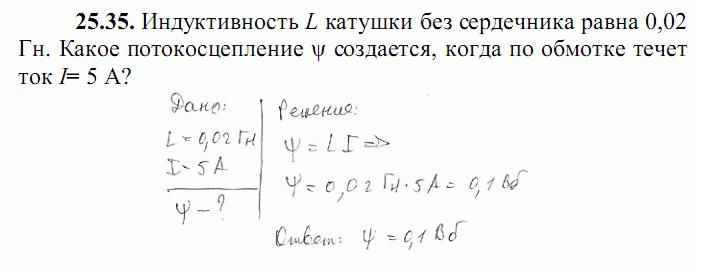 25.35. Индуктивность L катушки без сердечника равна 0,02
Гн. Какое потокосцепление ψ создается, когда по обмотке течет
ток I= 5 А?
Дано:
L = 0,02 Гн
I - 5 А
ψ - ?
Решение:
ψ = L I =>
ψ = 0,02 Гн · 5 А = 0,1 Вб
Ответ: ψ = 0,1 Вб